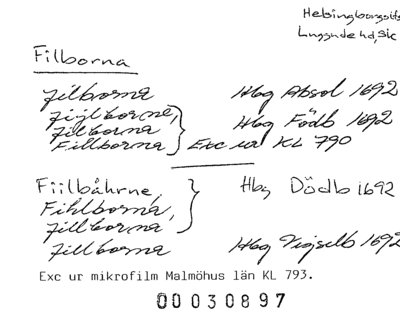 Helsingborgsitfs
Luggude hd, Sk
Filborna
Filborna Hbg Absol 1692
Fijlborne,
Filborna Hbg Födb 1692
Fillborna Exc ur KL 790
Fiilbåhrne, Hbg Dödb 1692
Fihlborna,
Fillborna
Fillborna Hbg Vigselb 1692
Exc ur mikrofilm Malmöhus län KL 793.
00030897